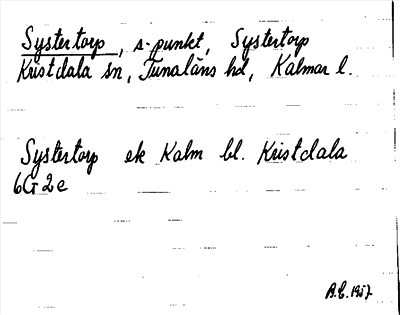 Systertorp, s-punkt, Systertorp
Kristdala sn, Tunaläns hd, Kalmar l.
Systertorp ek Kalm bl. Kristdala
6G2e
B.E. 1957